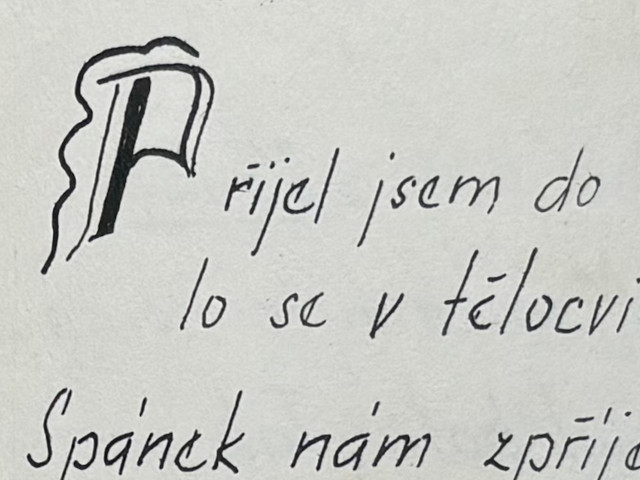 Přijel jsem do
lo se v tělocvi
Spánek nám zpříje